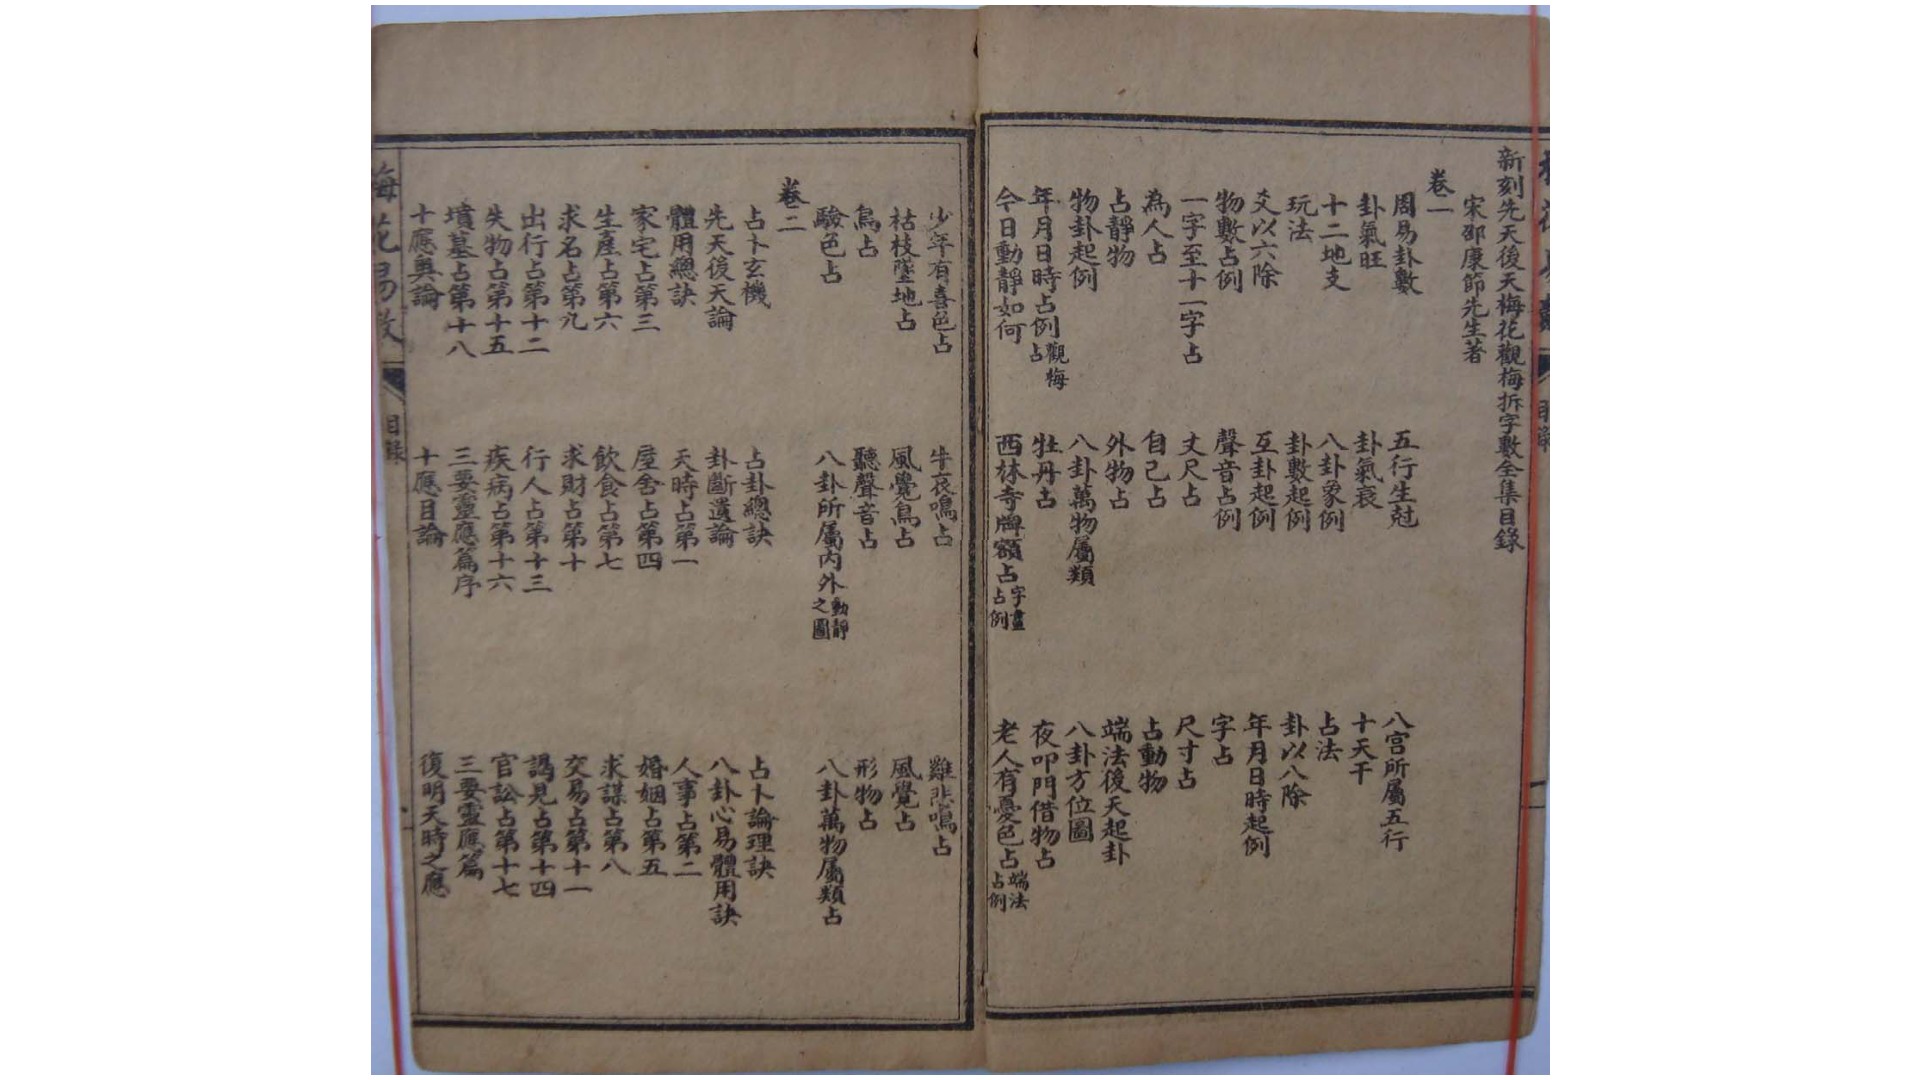 新刻先天後天梅花觀梅拆字數全集目錄
宋邵康節先生著
卷一
周易卦數 五行生尅 八宫所屬五行
卦氣旺 卦氣衰 十天干
十二地支 八卦象例 占法
玩法 卦數起例 卦以八除
爻以六除 互卦起例 年月日時起例
物數占例 聲音占例 字占
一字至十一字占 丈尺占 尺寸占
為人占 自己占 占動物
占靜物 外物占 端法後天起卦
物卦起例 八卦萬物屬類 八卦方位圖
年月日時占例觀梅占 牡丹占 夜叩門借物占
今日動靜如何 西林寺牌額占字畫占例 老人有憂色占端法占例
少年有喜色占 牛哀鳴占 雞悲鳴占
枯枝墜地占 風覺鳥占 風覺占
鳥占 聽聲音占 形物占
驗色占 八卦所屬内外動靜之圖 八卦萬物屬類占
卷二
占卜玄機 占卦總訣 占卜論理訣
先天後天論 卦斷遺論 八卦心易體用訣
體用總訣 天時占第一 人事占第二
家宅占第三 屋舍占第四 婚姻占第五
生產占第六 飲食占第七 求謀占第八
求名占第九 求財占第十 交易占第十一
出行占第十二 行人占第十三 謁見占第十四
失物占第十五 疾病占第十六 官訟占第十七
墳墓占第十八 三要靈應篇序 三要靈應篇
十應奧論 十應目論 復明天時之應
梅花易數 目錄